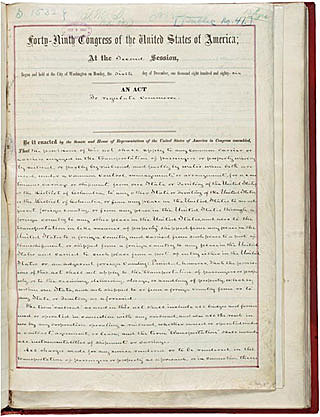 Forty-Ninth Congress of the United States of America;
At the Second Session,
Begun and held at the City of Washington on Monday, the Sixth day of December, one thousand eight hundred and eighty-six
AN ACT
To regulate commerce.
Be it enacted by the Senate and House of Representatives of the United States of America in Congress assembled,
That the provisions of this act shall apply to any common carrier or
carriers engaged in the transportation of passengers or property wholly
by railroad, or partly by railroad and partly by water when both are
used, under a common control, management, or arrangement, for a con-
tinuous carriage or shipment, from one State or Territory of the United States,
or the District of Columbia, to any other State or Territory of the United States,
or the District of Columbia, or from any place in the United States to an ad-
jacent foreign country, or from any place in the United States through a
foreign country to any other place in the United States, and also to the
transportation in like manner of property shipped from any place in the
United States to a foreign country and carried from such place to a port of
transshipment, or shipped from a foreign country to any place in the United
States and carried to such place from a port of entry either in the United
States or an adjacent foreign country: Provided, however, That the provis-
ions of this act shall not apply to the transportation of passengers or prop-
erty, or to the receiving, delivering, storage, or handling of property, wholly
within one State, and not shipped to or from a foreign country from or to
any State or Territory as aforesaid.
The term "railroad" as used in this act shall include all bridges and ferries
used or operated in connection with any railroad, and also all the road in
use by any corporation operating a railroad, whether owned or operated under
a contract, agreement, or lease; and the term "transportation" shall include
all instrumentalities of shipment or carriage.
All charges made for any service rendered or to be rendered in the
transportation of passengers or property as aforesaid, or in connection therewith